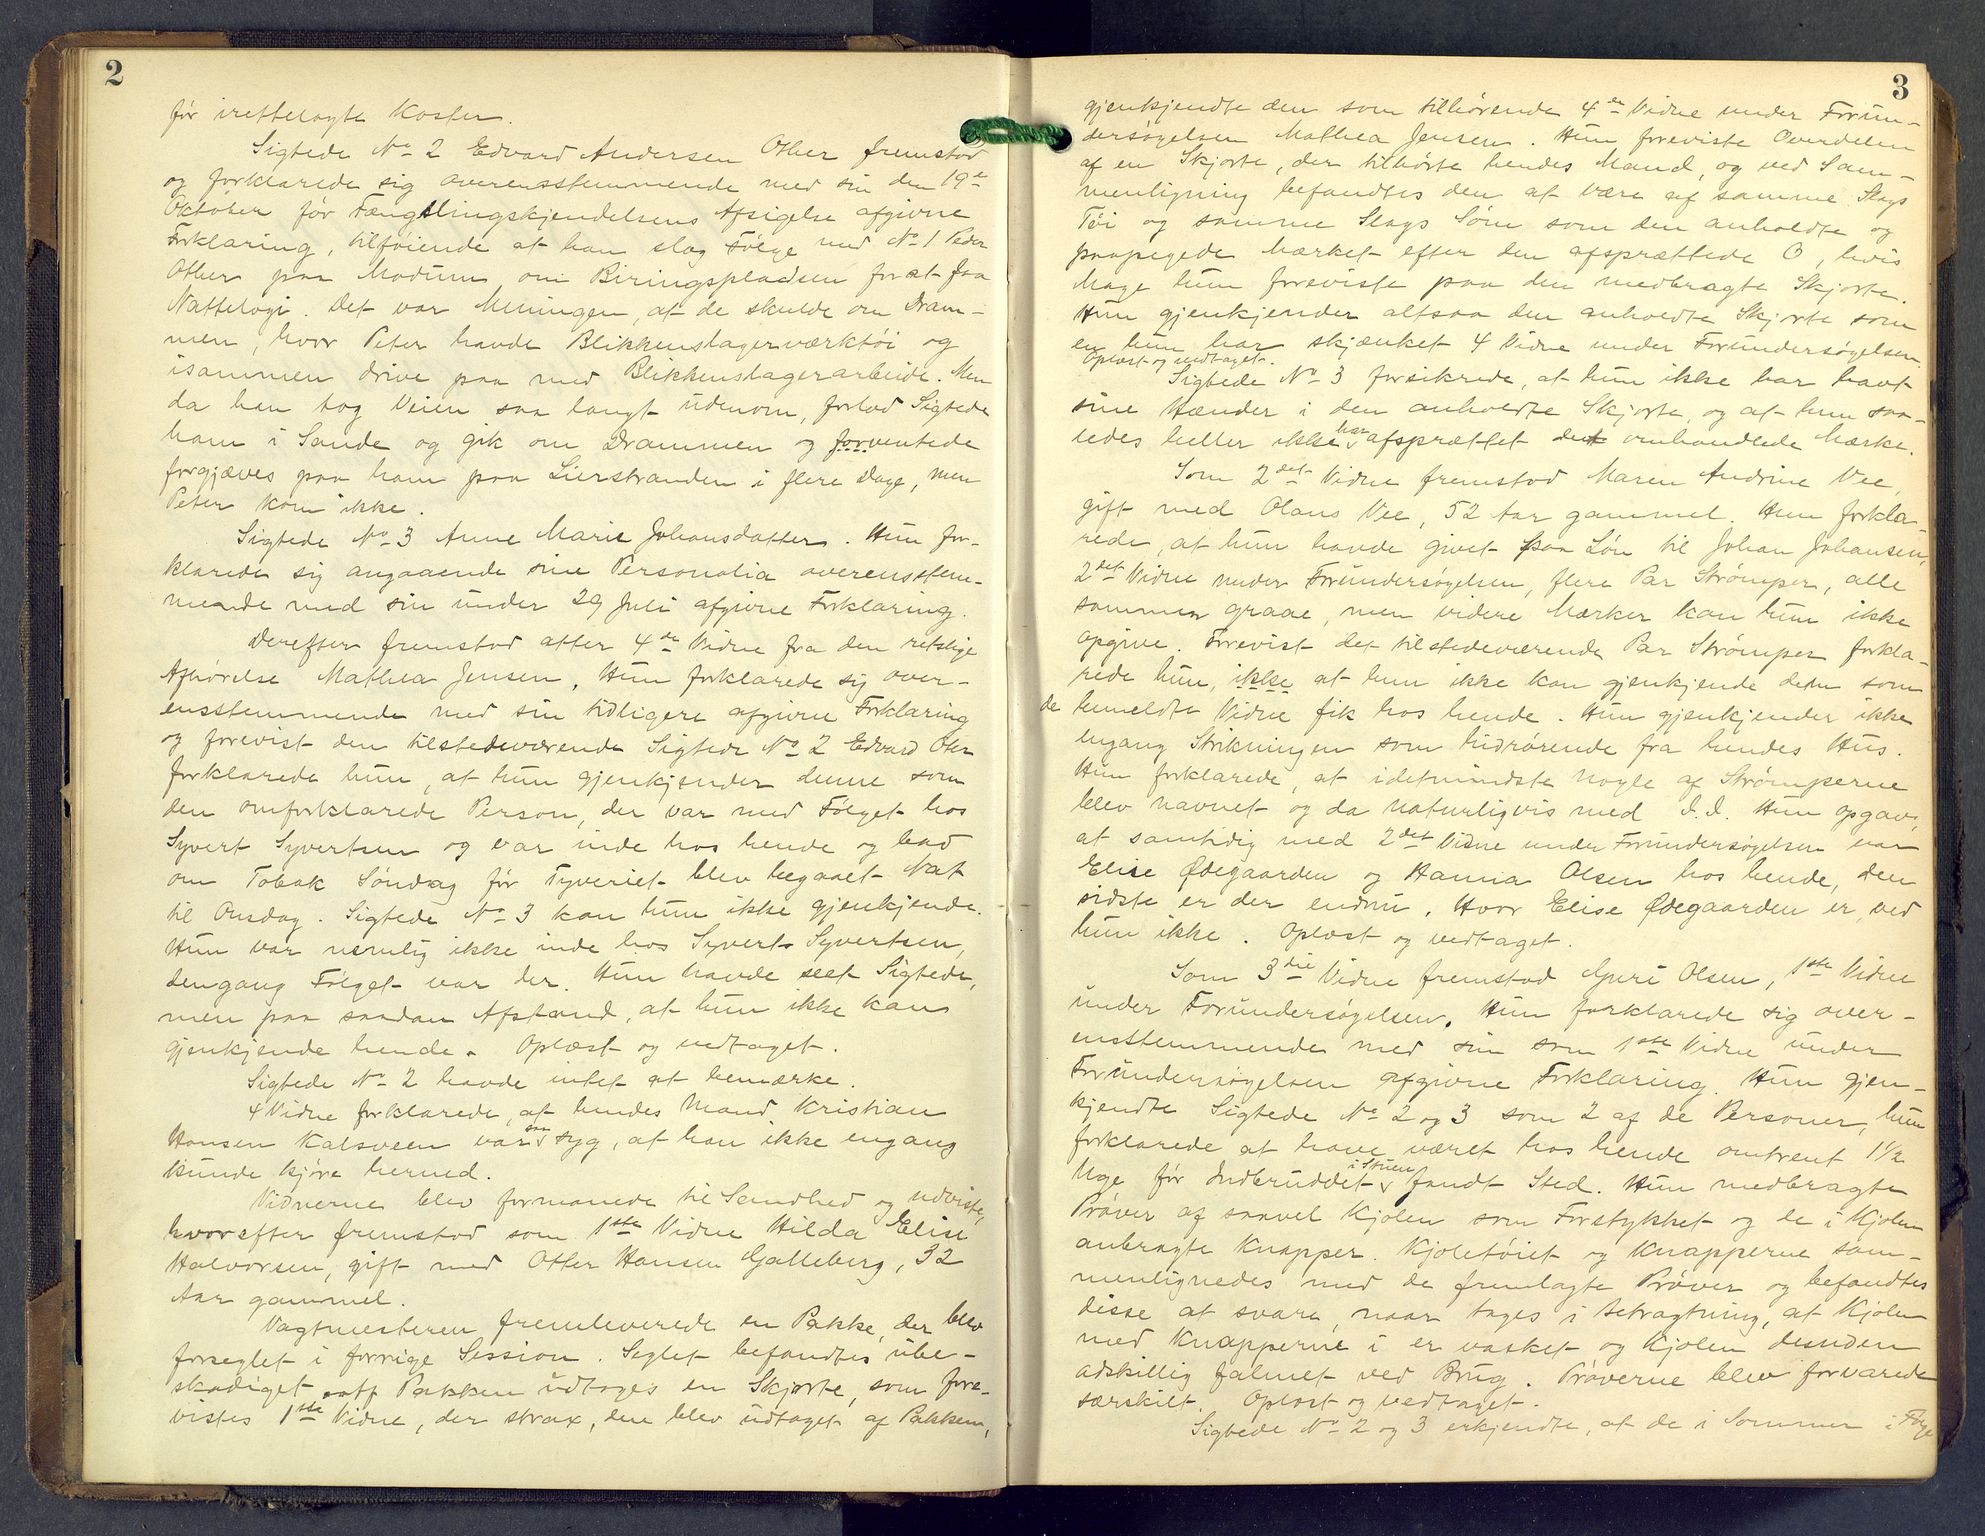 2
før irettelagte Koster.
Sigtede No 2 Edvard Andersen Other fremstod
og forklarede sig overensstemmende med sin den 19de
Oktober før Fængslingskjendelsens Afsigelse afgivne
Forklaring, tilføiende at han slog Følge med No 1 Peder
Other paa Modum om Biringspladsen for at faa
Nattelogi. Det var Meningen, at de skulde om Dram-
men, hvor Peter havde Blikkenslagerværktøi og
isammen drive paa med Blikkenslagerarbeide. Men
da han tog Veien saa langt udenom, forlod Sigtede
ham i Sande og gik om Drammen og forventede
forgjæves paa ham paa Lierstranden i flere Dage, men
Peter kom ikke.
Sigtede No 3 Anne Marie Johansdatter. Hun for-
klarede sig angaaende sine Personalia overensstem-
mende med sin under 29 Juli afgivne Forklaring.
Derefter fremstod atter 4de Vidne fra den retslige
Afhørelse Mathea Jensen. Hun forklarede sig over-
ensstemmende med sin tidligere afgivne Forklaring
og forevist den tilstedeværende Sigtede No 2 Edvard Oter
forklarede hun, at hun gjenkjender denne som
den omforklarede Person, der var med Følget hos
Syvert Syvertsen og var inde hos hende og bad
om Tobak Søndag før Tyveriet blev begaaet Nat
til Onsdag. Sigtede No 3 kan hun ikke gjenkjende.
Hun var nemlig ikke inde hos Syvert Syvertsen,
dengang Følget var der. Hun havde seet Sigtede,
men paa saadan Afstand, at hun ikke kan
gjenkjende hende. Oplæst og vedtaget.
Sigtede No 2 havde intet at bemærke.
4 Vidne forklarede, at hendes Mand Kristian
Hansen Kalsveen var saa syg, at han ikke engang
kunde kjøre herned.
Vidnerne blev formanede til Sandhed og udviste,
hvorefter fremstod som 1ste Vidne Hilda Elise
Halvorsen, gift med Otter Hansen Galleberg, 32
Aar gammel.
Vagtmesteren fremleverede en Pakke, der blev
forseglet i forrige Session. Seglet befandtes ube-
skadiget. Af Pakken udtoges en Skjorte, som fore-
vistes 1ste Vidne, der strax, den blev udtaget af Pakken,
3
gjenkjendte den som tilhørende 4de Vidne under Forun-
dersøgelsen Mathea Jensen. Hun foreviste Overdelen
af en Skjorte, der tilhørte hendes Mand, og ved Sam-
menligning befandtes den at være af samme Slags
Tøi og samme Slags Søm som den anholdte og
paapegede Mærket efter den afsprættede O, hvis
Mage hun foreviste paa den medbragte Skjorte.
Hun gjenkjender altsaa den anholdte Skjorte som
en hun har skjænket 4 Vidne under Forundersøgelsen.
Oplæst og vedtaget.
Sigtede No 3 forsikrede, at hun ikke har havt
sine Hænder i den anholdte Skjorte, og at hun saa-
ledes heller ikke har afsprættet det omhandlede Mærke.
Som 2det Vidne fremstod Maren Andrine Vee,
gift med Olaus Vee, 52 Aar gammel. Hun forkla-
rede, at hun havde givet paa Løn til Johan Johansen,
2det Vidne under Forundersøgelsen, flere Par Strømper, alle
sammen graae, men videre Mærker kan hun ikke
opgive. Forevist det tilstedeværende Par Strømper forkla-
rede hun, ikke at hun ikke kan gjenkjende dem som
de bemeldte Vidne fik hos hende. Hun gjenkjender ikke
engang Strikningen som hidrørende fra hendes Hus.
Hun forklarede, at idetmindste nogle af Strømperne
blev navnet og da naturligvis med J.J. Hun opgav,
at samtidig med 2det Vidne under Forundersøgelsen var
Elise Ødegaarden og Hanna Olsen hos hende, den
sidste er der endnu. Hvor Elise Ødegaarden er, ved
hun ikke. Oplæst og vedtaget.
Som 3die Vidne fremstod Guri Olsen, 1ste Vidne
under Forundersøgelsen. Hun forklarede sig over-
ensstemmende med sin som 1ste Vidne under
Forundersøgelsen afgivne Forklaring. Hun gjen-
kjendte Sigtede No 2 og 3 som 2 af de Personer, hun
forklarede at have været hos hende omtrent 1½
Uge før Indbruddet i Stuen fandt Sted. Hun medbragte
Prøver af saavel Kjolen som Forstykket og de i Kjolen
anbragte Knapper. Kjoletøiet og Knapperne sam-
menlignedes med de fremlagte Prøver og befandtes
disse at svare, naar tages i Betragtning, at Kjolen
med Knapperne i er vasket og Kjolen desuden
adskillig falmet ved Brug. Prøverne blev forvarede
særskilt. Oplæst og vedtaget.
Sigtede No 2 og 3 erkjendte, at de i Sommer i Følge